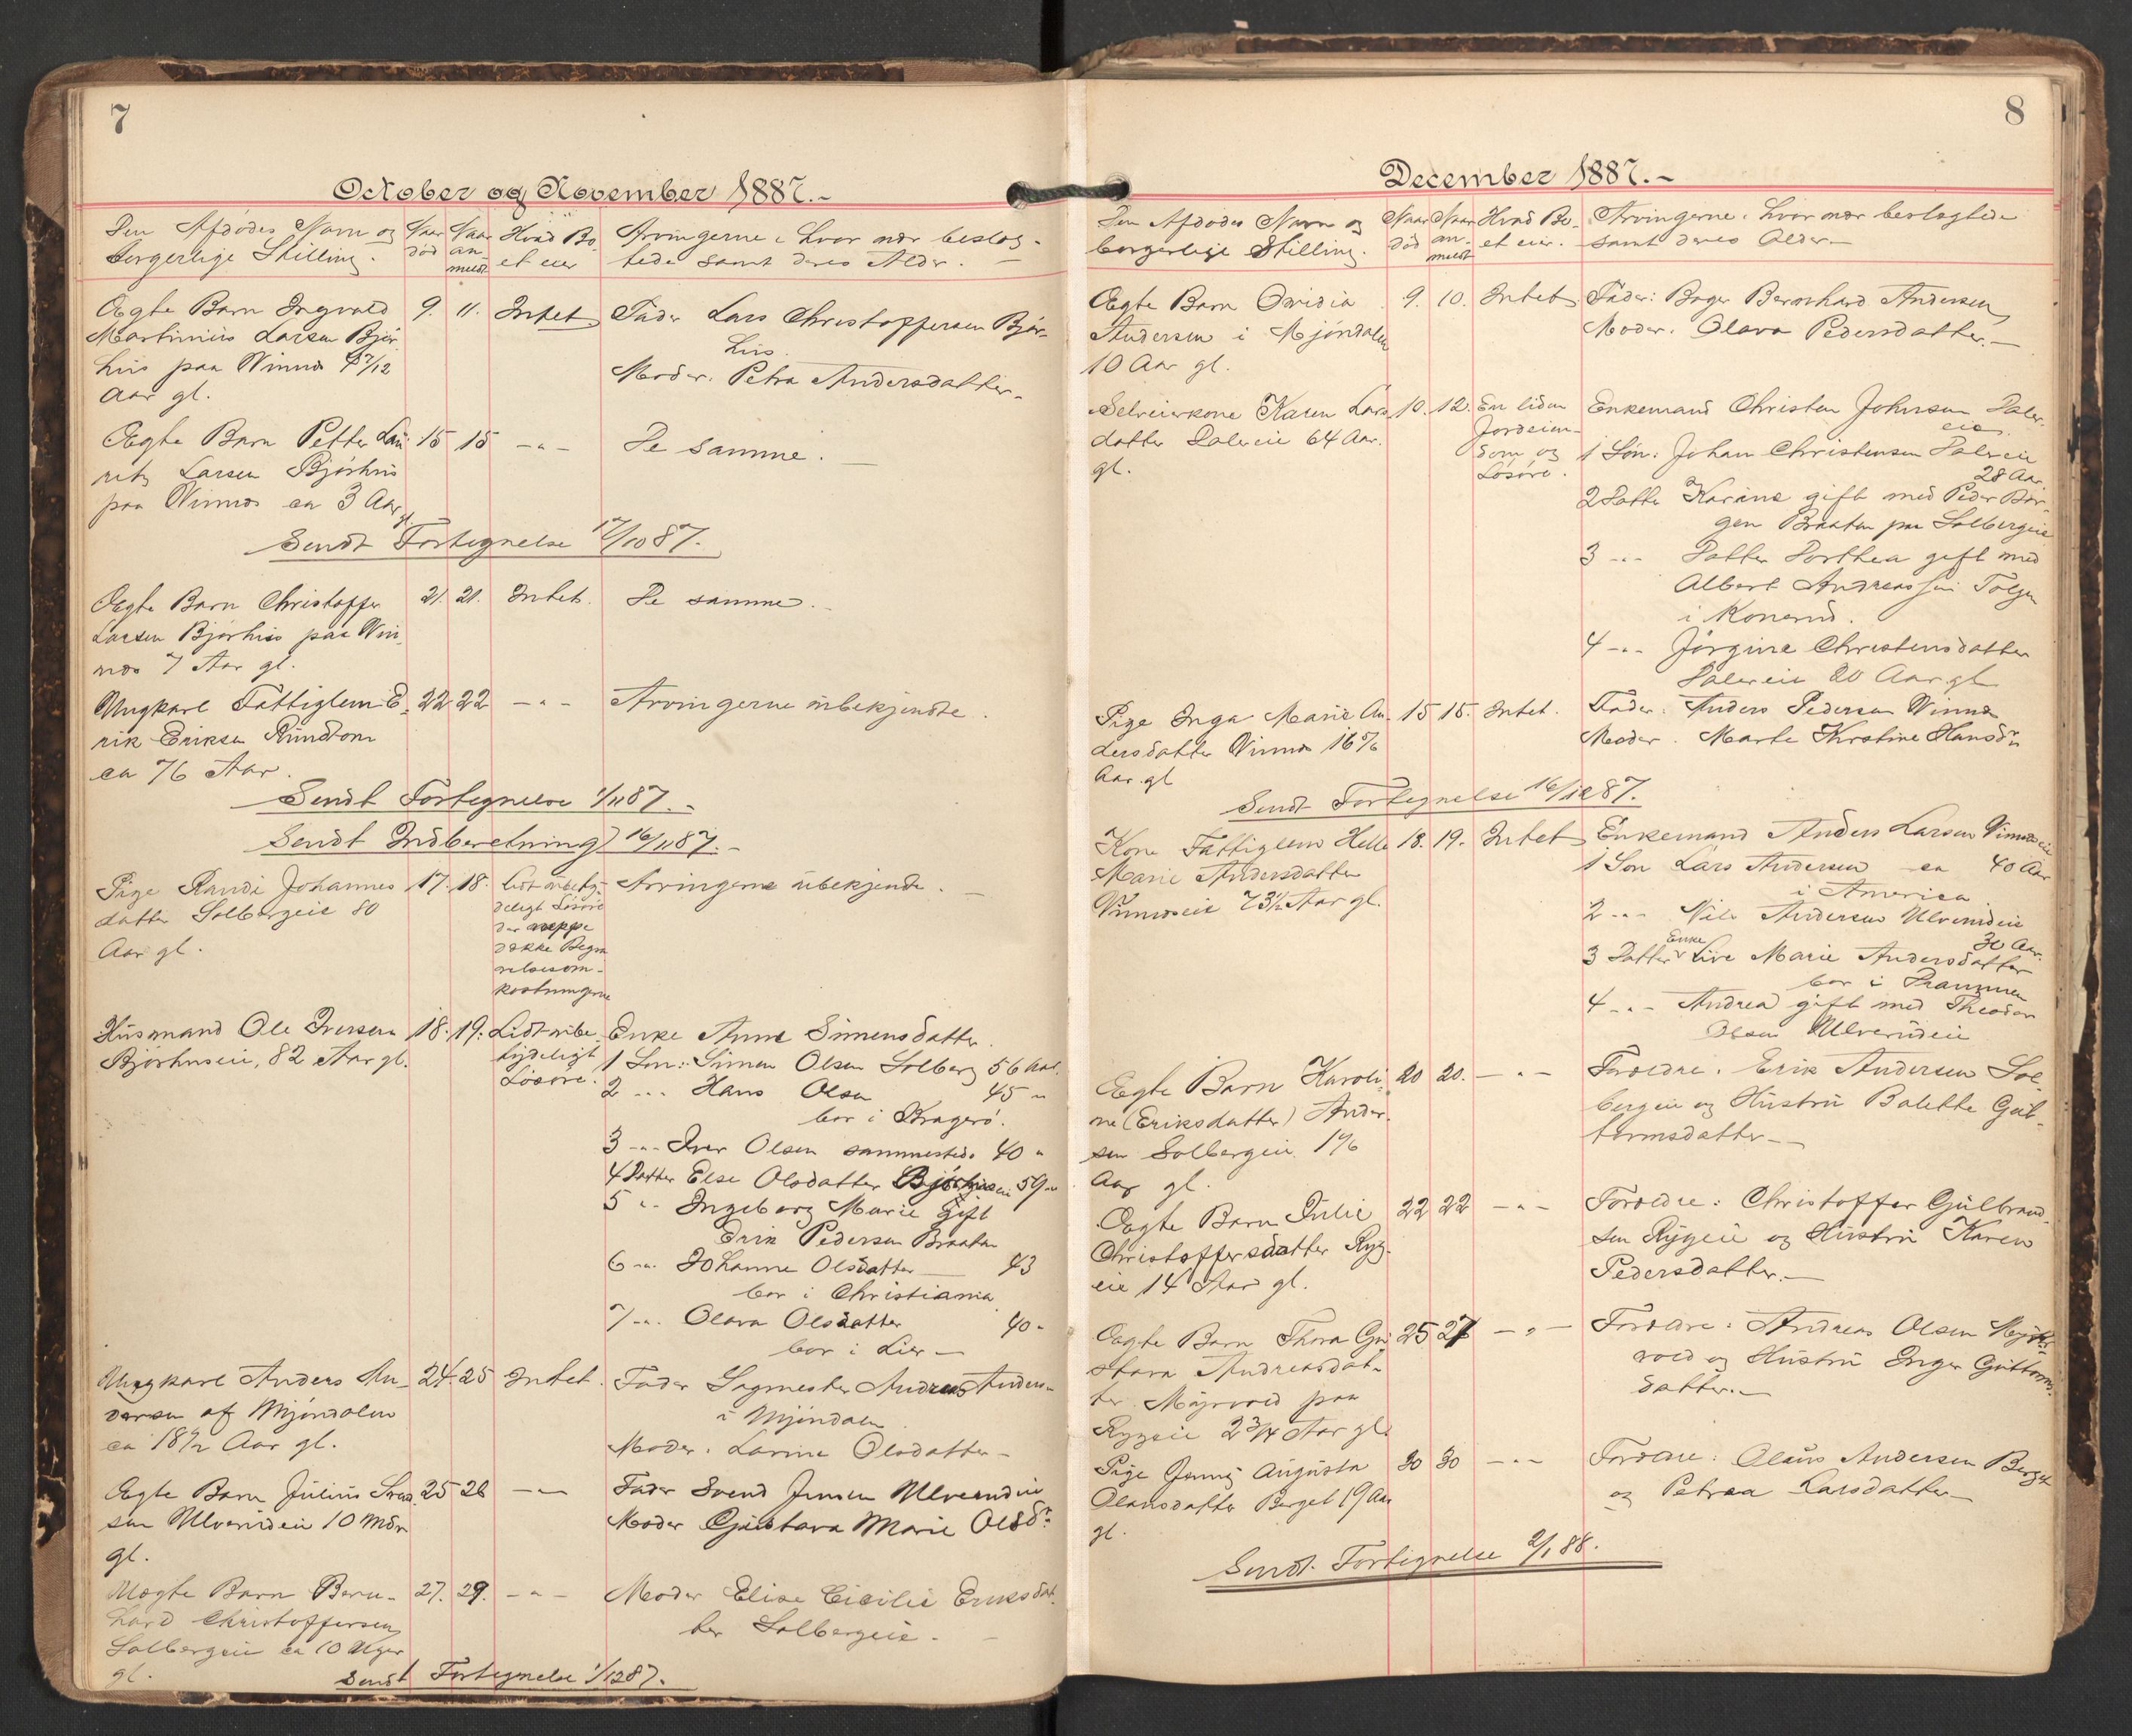 7
October og November 1887.-
Den Afdödes Navn og
borgerlige Stilling.
Naar
död
Naar
an-
meldt
Hvad Bo-
et eier
Arvingerne, hvor nær beslæg-
tede samt deres Alder. -
Ægte Barn Ingvald
Martinius Larsen Bjør-
hus paa Vinnæs
Aar gl.
9. 11. Intet
Fader Lars Christoffersen Bjør-
hus.
Moder. Petra Andersdatter.
Ægte Barn Petter Lau-
ritz Larsen Bjórhus
paa Vinnæs ca 3 Aar
gl.
15 15 - " -
De samme. -
Sendt Fortegnelse 17/10 87.
Ægte Barn Christoffer
Larsen Bjørhus paa Vin-
næs 7 Aar gl.
21. 21. Intet.
De samme. -
Ungkarl Fattiglem E-
rik Eriksen Rundtom
ca 76 Aar.
22 22 - " -
Arvingerne ubekjendte.
Sendt Fortegnelse 1/11 87.-
Sendt Indberetning 16/11 87.-
Pige Randi Johannes
datter Solbergeie 80
Aar gl.
17. 18.
lidt ubety-
deligt Lösöre
der neppe
dække Begra
velsesom-
kostningerne
Arvingerne ubekjende. -
Husmand Ole Iversen
Bjørhuseie, 82 Aar gl.
18. 19.
Lidt ube-
tydeligt
Lösöre.
Enke Anne Simensdatter.
1 Sön: Simen Olsen Solberg 56 Aar.
2 - " - Hans Olsen 45 "
bor i Kragerö.
3 - " - Iver Olsen sammesteds 40 "
4 Datter Else Olsdatter Bjørhuseie 59 "
5 " - Ingeborg Marie gift
Erik Pedersen Braaten
6 - " - Johanne Olsdatter 43
bor i Christiania
7 - " - Olava Olsdatter 40 "
bor i Lier -
Ungkarl Anders An-
dersen af Mjöndalen
ca 18 1/2 Aar gl.
24. 25 Intet.
Fader Sagmester Andreas Anders-
i Mjöndalen
Moder. Larine Olsdatter -
Ægte Barn Julius Svend-
sen Ulverudeie 10 Mdr
gl.
25 26 - " -
Fader Svend Jensen Ulverudeie
Moder Gustava Marie Olsdr.
Uægte Barn Bern-
hard Christoffersen
Solbergeie ca 10 Uger
gl.
27. 29. - " -
Moder Elise Cicilie Eriksdat-
ter Solbergeie. -
Sendt Fortegnelse 1/12 87.
8
December 1887.-
Den Afdödes Navn og
borgerlige Stilling.
Naar
död
Naar
an-
meldt
Hvad Bo-
et eier.
Arvingerne, hvor nær beslægtede
samt deres Alder -
Ægte Barn Ovidia
Andersen i Mjöndalen
10 Aar gl.
9. 10. Intet
Fader: Bager Bernhard Andersen
Moder. Olava Pedersdatter. -
Selveierkone Karen Lars-
datter Dalereie 64 Aar.
gl.
10. 12.
En liden
Jordeien-
dom og
Lösöre.
Enkemand Christen Johnsen Daler-
eie.
1 Sön: Johan Christensen Dalereie
28 Aar
2 Datte Karine gift med Peder Bör-
gen Braaten paa Solbergeie
3 - " - Datter Dorthea gift med
Albert Andreassen
i Konerud.
4 - " - Jörgine Christensdatter
Dalereie 20 Aar gl
Pige Inga Marie An-
dersdatter Vinnæs
Aar gl
15 15. Intet.
Fader. Anders Pedersen Vinnæs
Moder. Marte Kirstine Hansdr
Sendt Fortegnelse 16/12 87.
Kone Fattiglem Helle
Marie Andersdatter
Vinnæseie 73 1/2 Aar gl.
18. 19. Intet
Enkemand Anders Larsen Vinnæseie
1 Sön Lars Andersen ca 40 Aar
i America
2 - " - Nils Andersen Ulverudeie
30 Aar.
Enke
3 Datter Live Marie Andersdatter
bor i Drammen
4 - " - Andrea gift med Theodor
Olsen Ulverudeie
Ægte Barn Karoli-
ne (Eriksdatter) Ander-
sen Solbergeie
Aar gl.
20 20. - " -
Foreldre. Erik Andersen Sol-
bergeie og Hustru Balette Gut-
tormsdatter -
Ægte Barn Julie
Christoffersdatter Ryg-
eie 14 Aar gl.
22 22 - " -
Foreldre: Christoffer Gulbrand-
sen Ryggeie og Hustru Karen
Pedersdatter. -
Ægte Barn Thora Gu-
stava Andreasdat-
ter Myrvold paa
Ryggeie 2 3/4 Aar gl.
25 27 - " -
Foreldre: Andreas Olsen Myr-
vold og Hustru Inger Guttorms-
datter. -
Pige Jenny Augusta
Olausdatter Berget 19 Aar
gl.
30 30 - " -
Foreldre: Olaus Andersen Berget
og Petraa Larsdatter -
Sendt Fortegnelse 2/1 88.